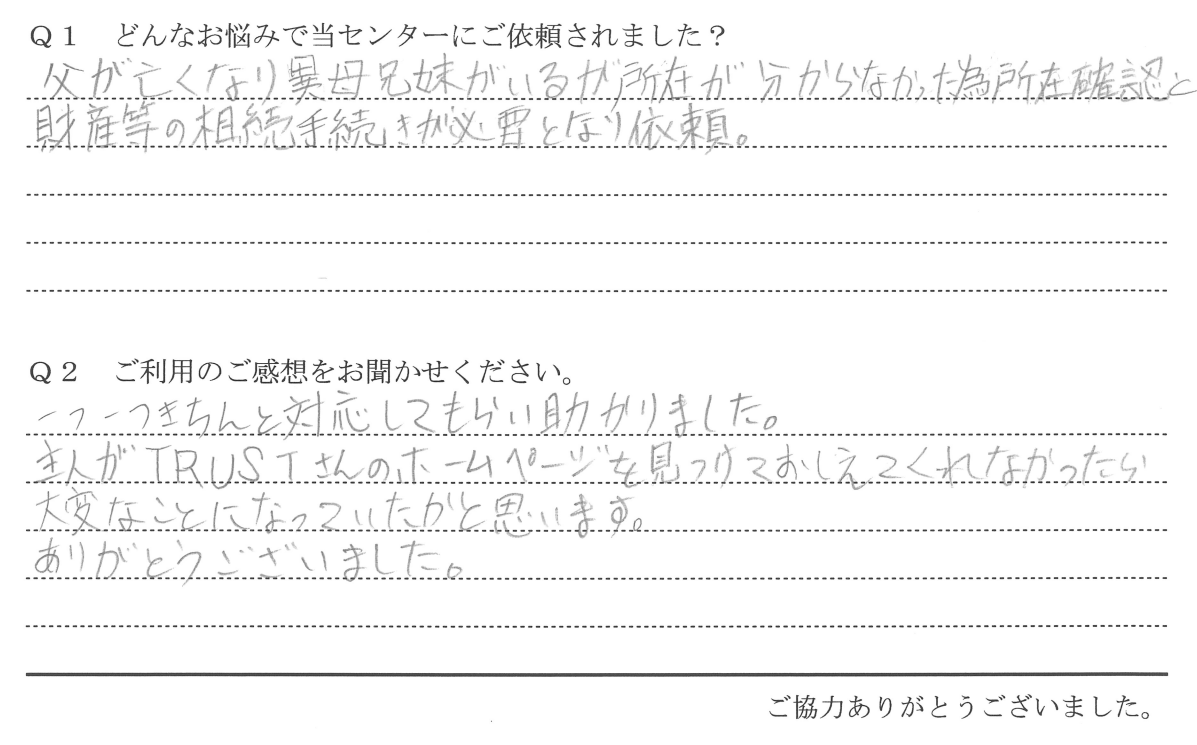 Q1 どんなお悩みで当センターにご依頼されました？
父が亡くなり異母兄妹がいるが所在が分からなかった為所在確認と
財産等の相続手続きが必要となり依頼。
Q2 ご利用のご感想をお聞かせください。
一つ一つきちんと対応してもらい助かりました。
主人がTRUSTさんのホームページを見つけておしえてくれなかったら
大変なことになっていたかと思います。
ありがとうございました。
ご協力ありがとうございました。